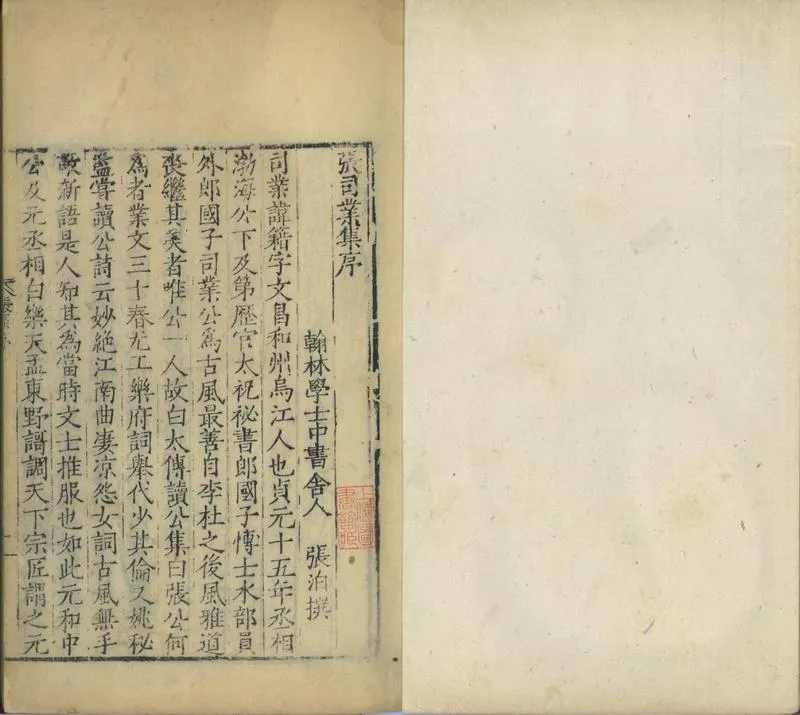 張司業集序
翰林學士中書舍人　張洎撰
司業諱籍字文昌和州烏江人也貞元十五年丞相
渤海公下及第歷官太祝秘書郎國子博士水部員
外郎國子司業公爲古風最善自李杜之後風雅道
喪繼其美者唯公一人故白太傅讀公集曰張公何
爲者業文三十春尤工樂府詞舉代少其倫又姚秘
監嘗讀公詩云妙絕江南曲淒涼怨女詞古風無手
敵新語是人知其爲當時文士推服也如此元和中
公及元丞相白樂天孟東野謌調天下宗匠謂之元
上海圖
書館藏